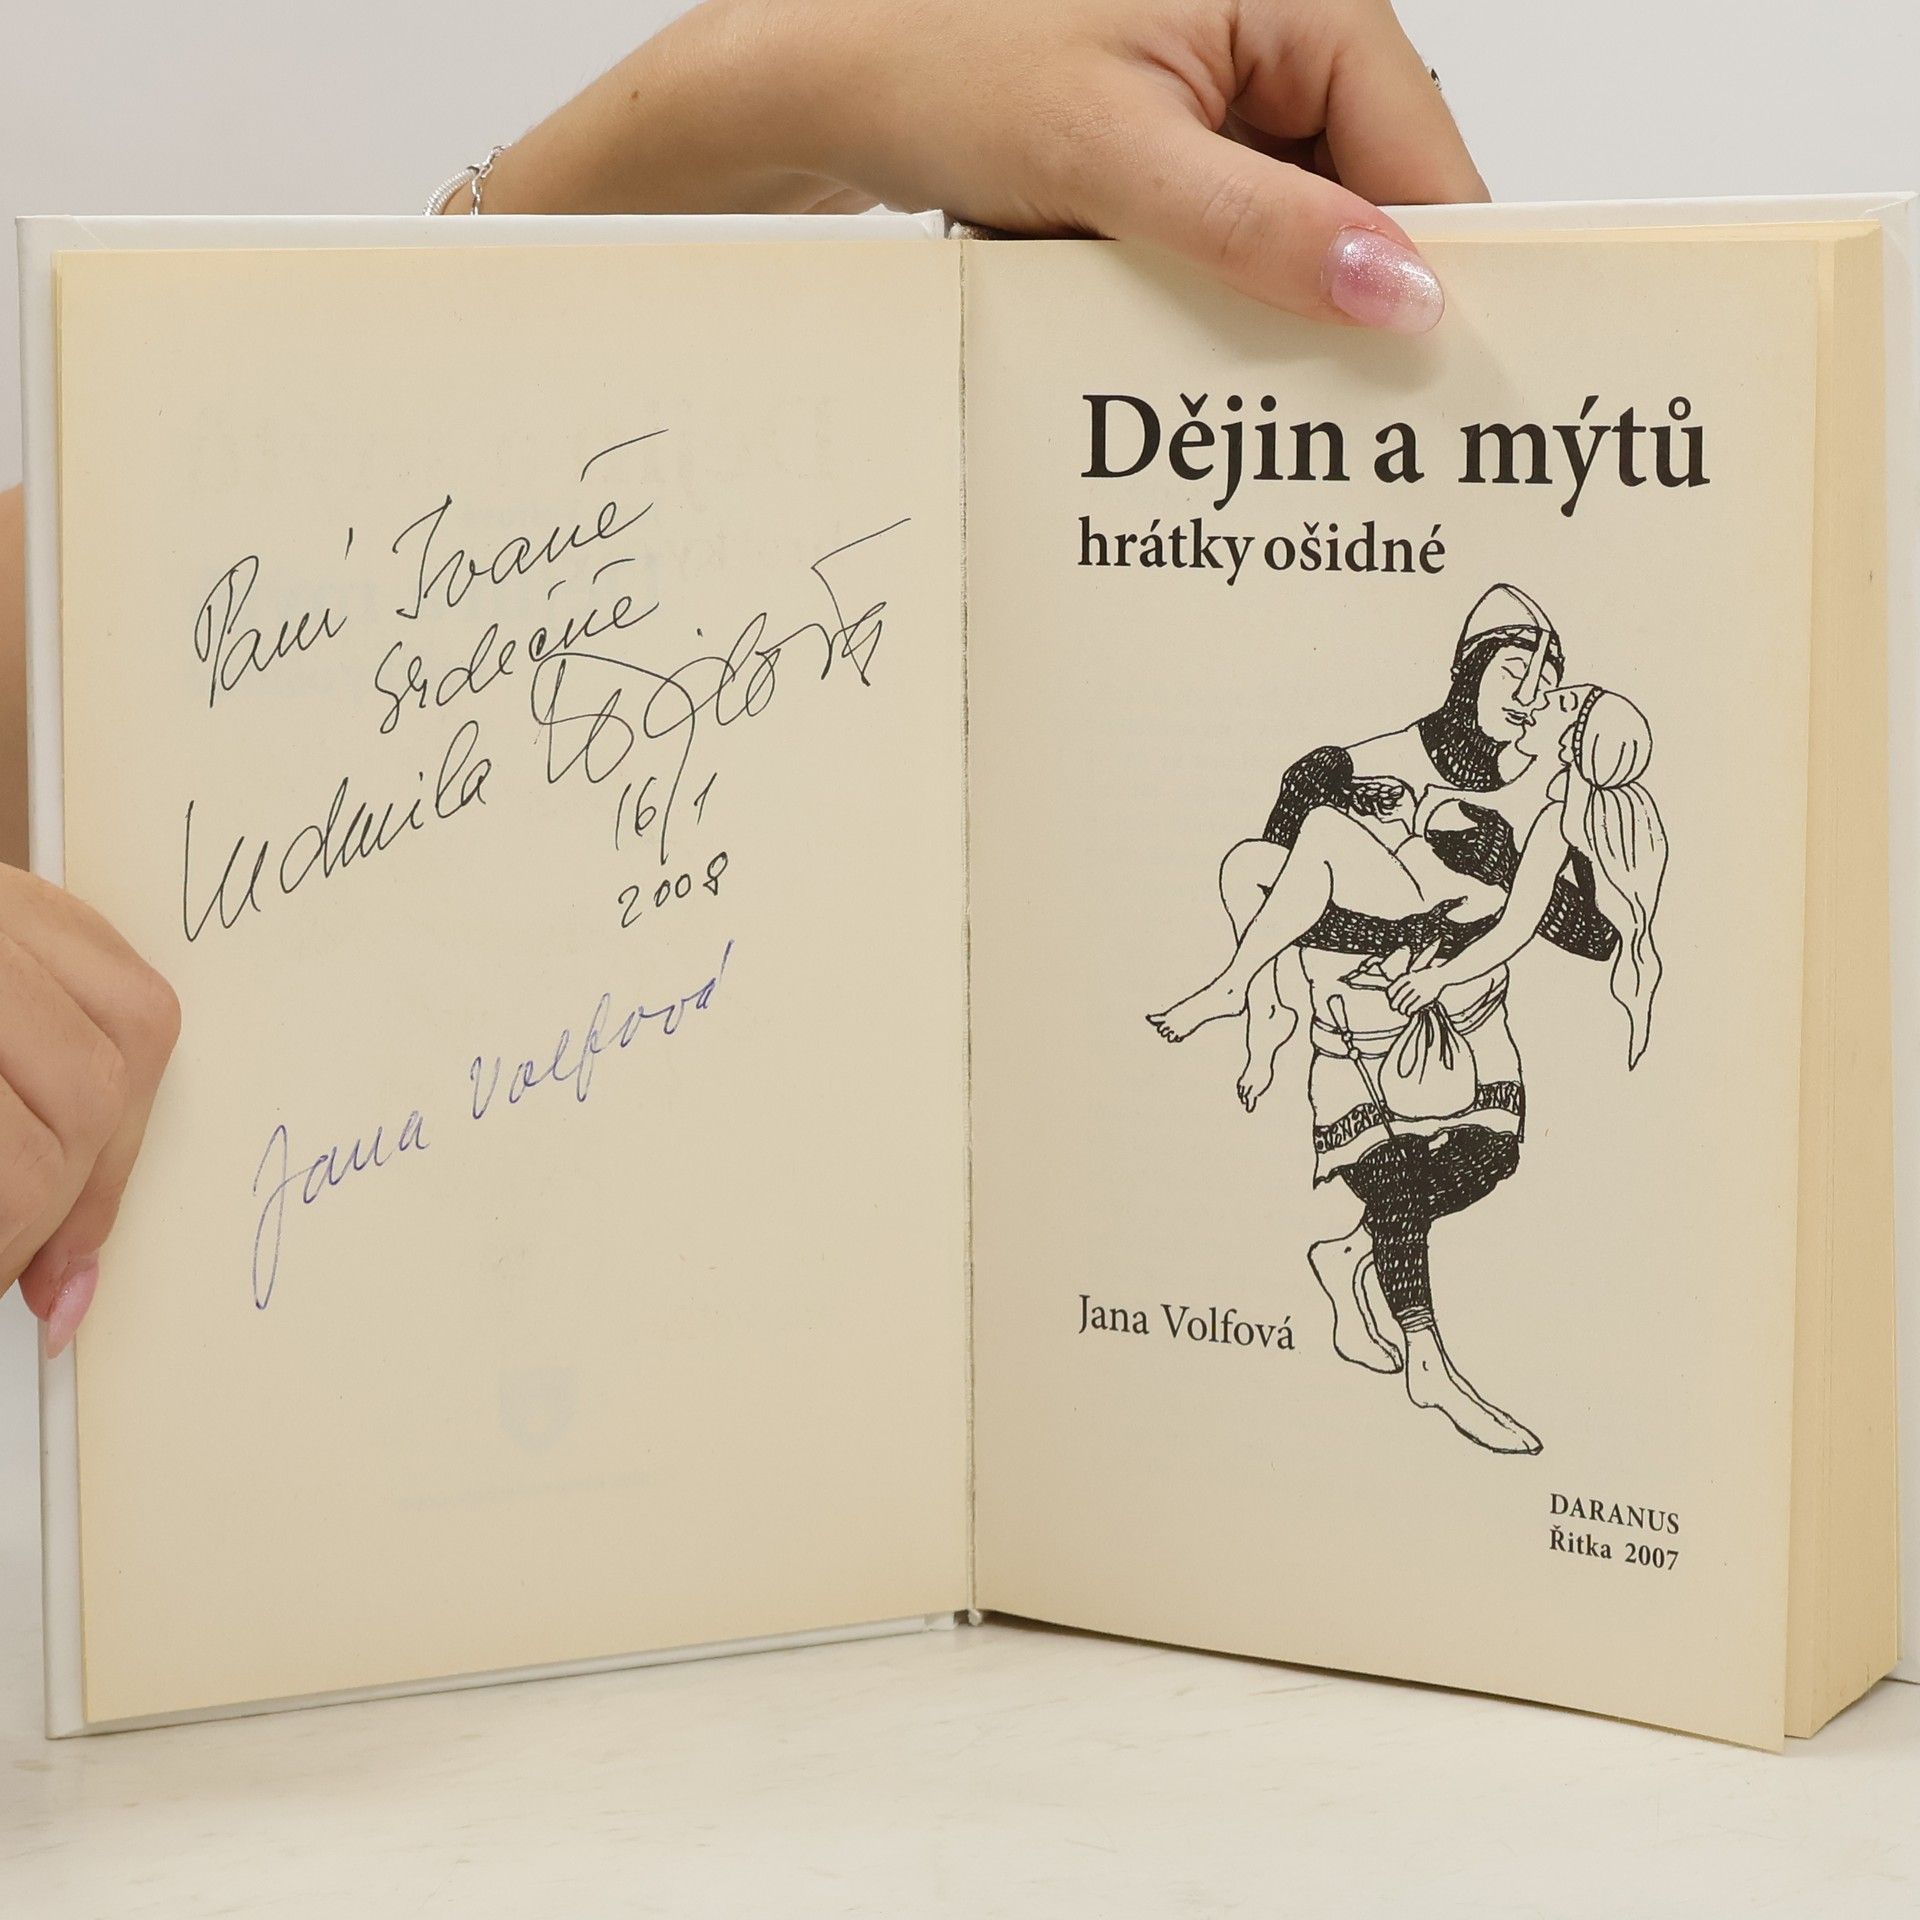 Paní Ivaně
srdečně
Ludmila
16/1
2008
Jana Volfová
Dějin a mýtů
hrátky ošidné
Jana Volfová
DARANUS
Řitka 2007